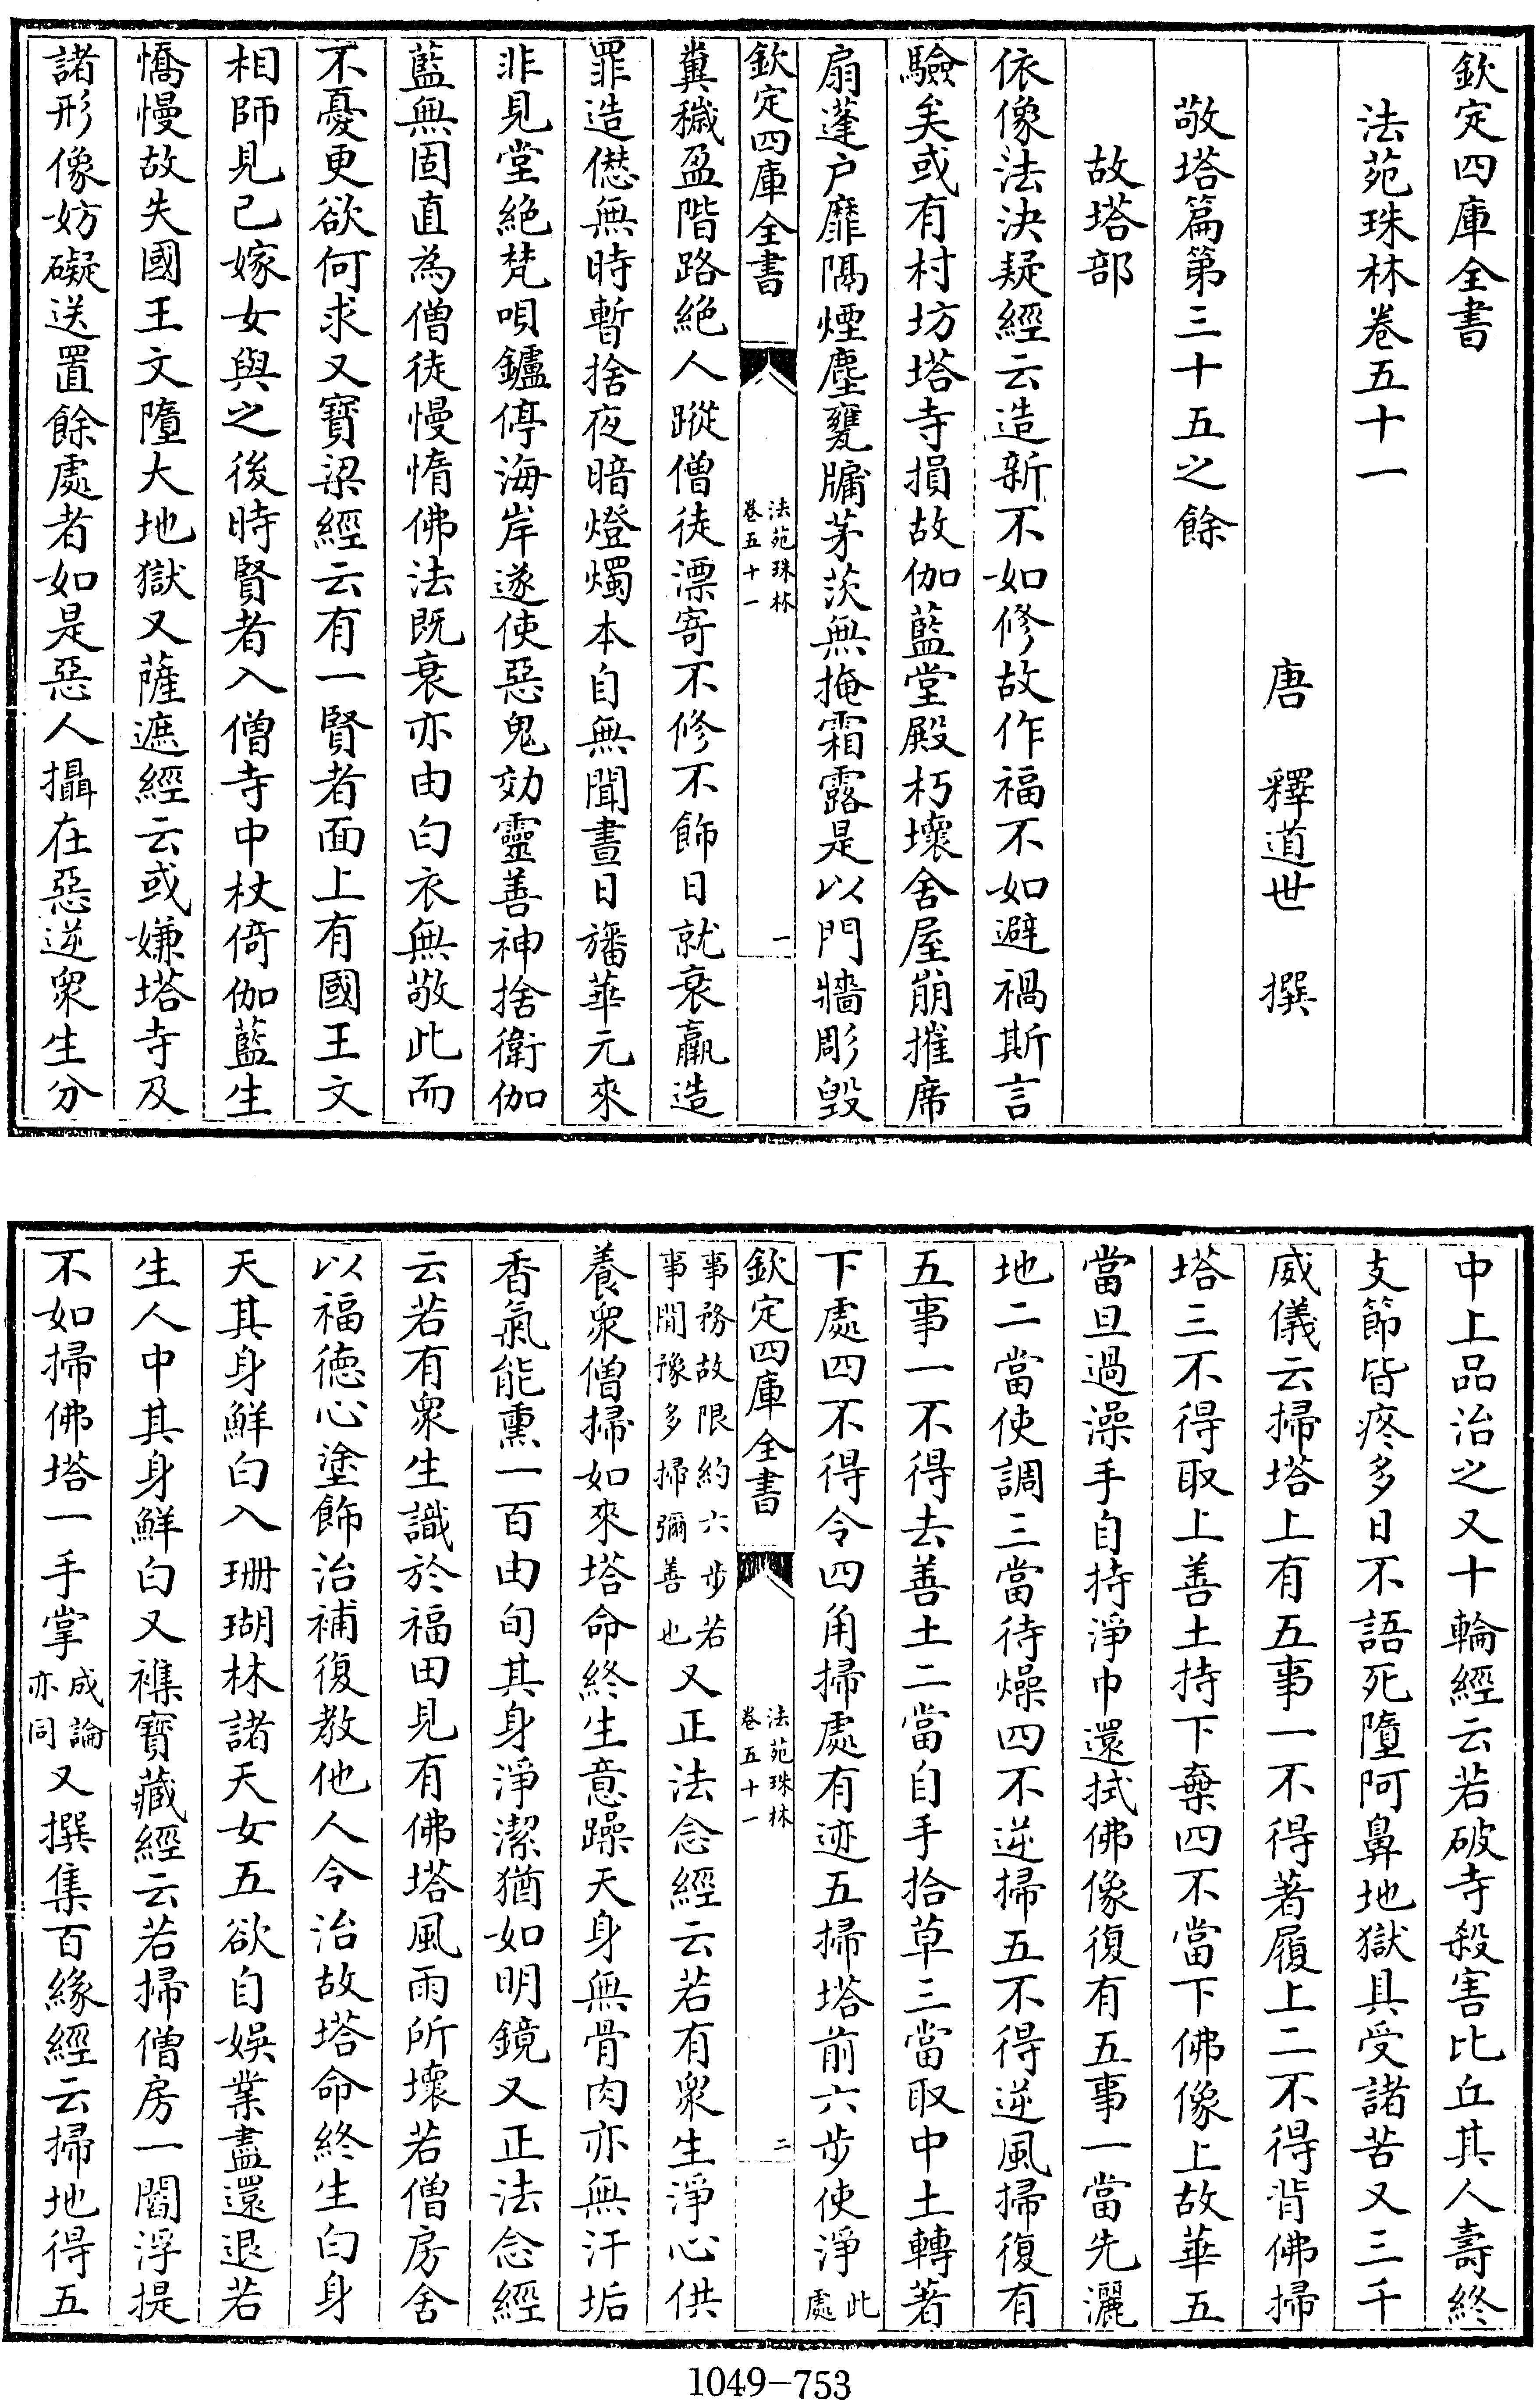 欽定四庫全書
法苑珠林卷五十一
唐 釋道世 撰
敬塔篇第三十五之餘
故塔部
依像法決疑經云造新不如修故作福不如避禍斯言
驗矣或有村坊塔寺損故伽藍堂殿朽壞舍屋崩摧席
扇蓬户靡隔煙塵甕牖茅茨無掩霜露是以門牆彫毀
欽定四庫全書
法苑珠林
卷五十一
一
糞穢盈階路絶人蹤僧徒漂寄不修不飾日就衰羸造
罪造僁無時暫捨夜暗燈燭本自無聞晝日旛華元來
非見堂絶梵唄鑪停海岸遂使惡鬼効靈善神捨衛伽
藍無固直為僧徒慢惰佛法既衰亦由白衣無敬此而
不憂更欲何求又寶梁經云有一賢者面上有國王文
相師見已嫁女與之後時賢者入僧寺中杖倚伽藍生
憍慢故失國王文墮大地獄又薩遮經云或嫌塔寺及
諸形像妨礙送置餘處者如是惡人攝在惡逆衆生分
中上品治之又十輪經云若破寺殺害比丘其人壽終
支節皆疼多日不語死墮阿鼻地獄具受諸苦又三千
威儀云掃塔上有五事一不得著履上二不得背佛掃
塔三不得取上善土持下棄四不當下佛像上故華五
當旦過澡手自持淨巾還拭佛像復有五事一當先灑
地二當使調三當待燥四不逆掃五不得逆風掃復有
五事一不得去善土二當自手拾草三當取中土轉著
下處四不得令四角掃處有迹五掃塔前六步使淨此處
欽定四庫全書
法苑珠林
卷五十一
二
事務故限約六步若事閒豫多掃彌善也又正法念經云若有衆生淨心供
養衆僧掃如來塔命終生意躁天身無骨肉亦無汗垢
香氣能熏一百由旬其身淨潔猶如明鏡又正法念經
云若有衆生識於福田見有佛塔風雨所壞若僧房舍
以福徳心塗飾治補復教他人令治故塔命終生白身
天其身鮮白入珊瑚林諸天女五欲自娛業盡還退若
生人中其身鮮白又襍寶藏經云若掃僧房一閻浮提
不如掃佛塔一手掌成論亦同又撰集百緣經云掃地得五
1049-753